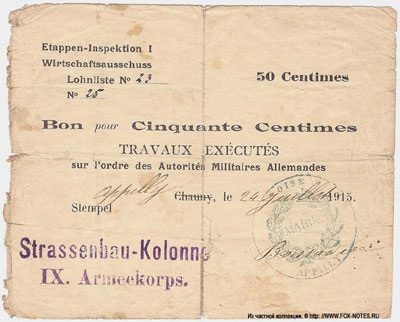 Etappen-Inspektion I
Wirtschaftsausschuss
Lohnliste № 23
№ 25
50 Centimes
Bon pour Cinquante Centimes
TRAVAUX EXÉCUTÉS
sur l'ordre des Autorités Militaires Allemandes
appilly
Chauny, le 24 Juillet 1915.
Stempel
OISE
MAIRIE
APPILLY
Strassenbau-Kolonne
IX. Armeekorps.
Из частной коллекции. © http://www.FOX-NOTES.RU